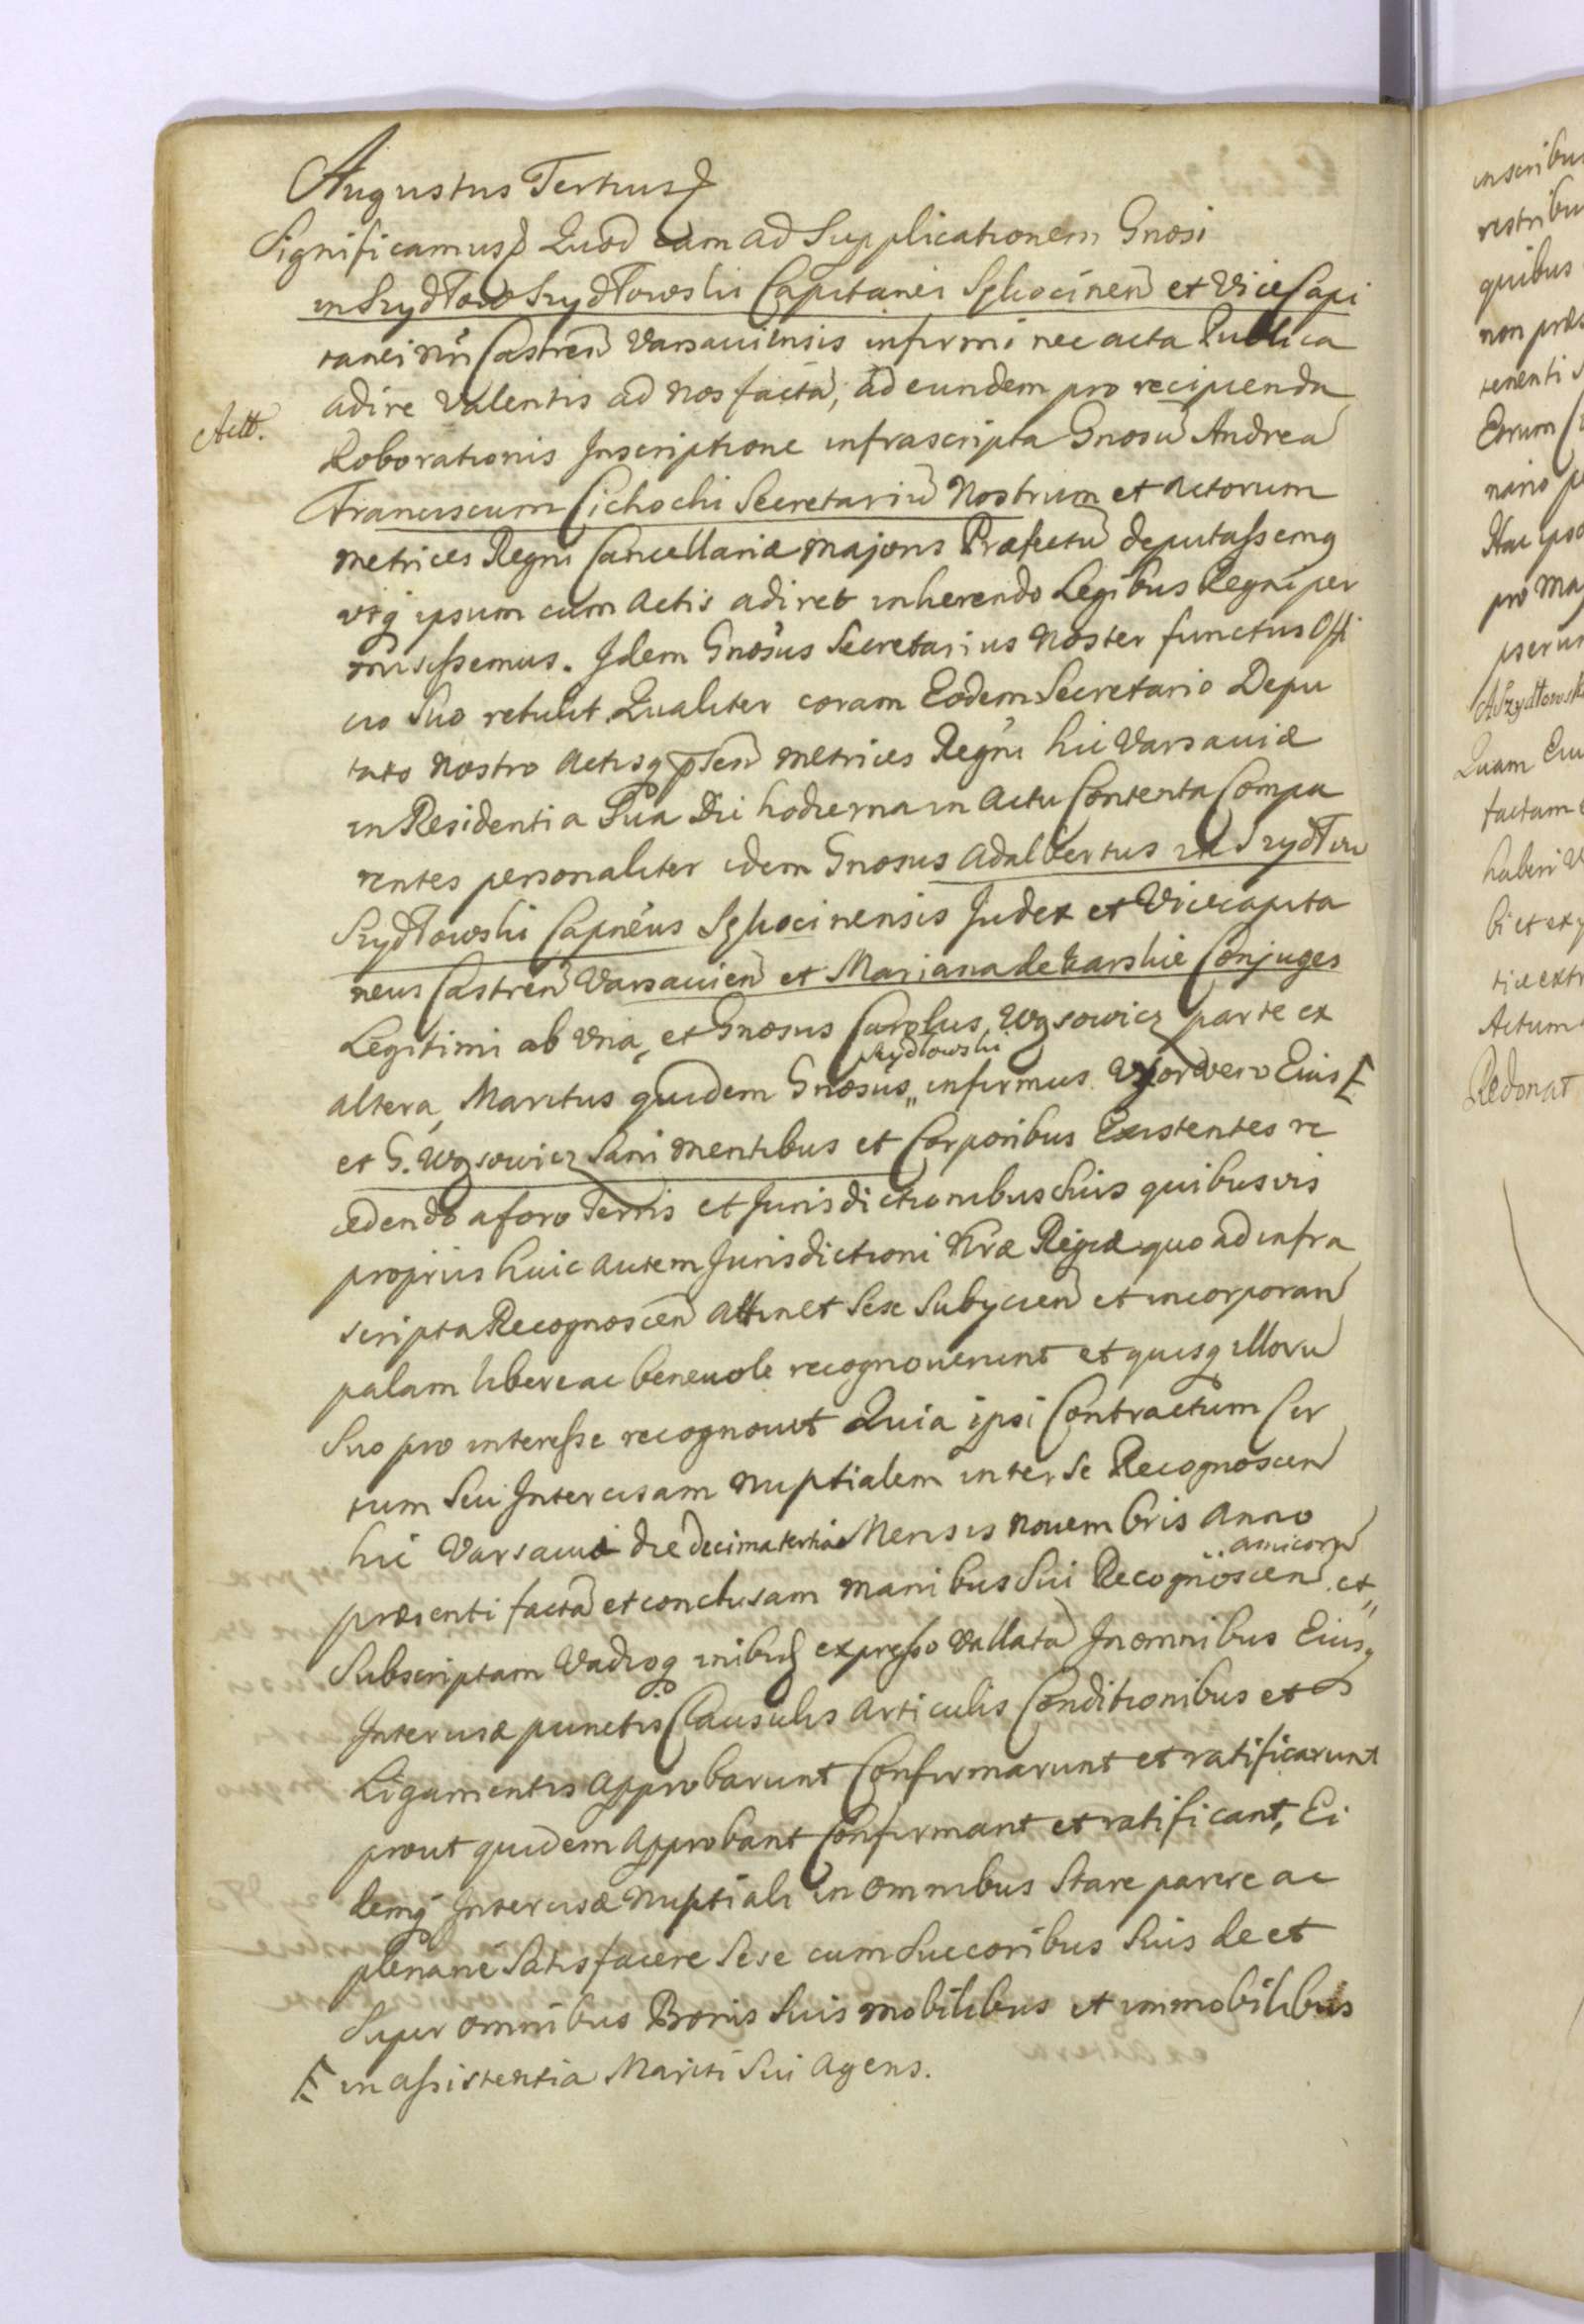 Augustus Tertius
Significamus Quod cum ad Supplicationem Gnosi
in Szydłow Szydłowski Capitanei Sghocinen et Vice Capi
tanei Nri Castren Varsaviensis infirmi nec acta Publica
adire Valentis ad Nos facta, ad eundem pro recipienda
Actt.
Roborationis Inscriptione infrascripta Gnosu Andrea
Franciscum Cichocki Secretariu Nostrum et Actorum
Metrices Regni Cancellariæ Majoris Præfectu deputassemq
vtq ipsum cum Actis adiret inherendo Legibus Regni per
misissemus. Idem Gnosus Secretarius Noster functus Offi
cio Suo retulit. Qualiter coram Eodem Secretario Depu
tato Nostro Actisq pnten Metrices Regni hic Varsaviæ
in Residentia Sua Die hodierna in Actu Contenta Compa
rentes personaliter idem Gnosus Adalbertus in Szydłow
Szydłowski Capneus Sghocinensis Judex et Vicecapita
neus Castren Varsavien et Mariana de Karskie Conjuges
Legitimi ab Vna, et Gnosus Carolus Wysowicz parte ex
altera, Maritus quidem Gnosus Szydłowski infirmus Vxor vero Eius
et G. Wysowicz Sani Mentibus et Corporibus Existentes re
cedendo a foro Terris et Jurisdictionibus Suis quibusvis
propriis huic autem Jurisdictioni Nræ Regiæ quo ad infra
scripta Recognoscen attinet Sese Subycien et incorporan
palam libere ac benevole recognoverunt et quisq illoru
Suo pro interesse recognovit Quia ipsi Contractum Cer
tum Seu Intercisam Nuptialem inter Se Recognoscen
hic Varsaviæ die decima tertia Mensis Novembris Anno
præsenti facta et conclusam manibus Sui Recognoscen et amicoru
Subscriptam Vadioq inibi expresso Vallata In omnibus Eiusq
Intercisæ punctis Clausulis Articulis Conditionibus et
Ligamentis Approbarunt Confirmarunt et ratificarunt
prout quidem Approbant Confirmant et ratificant, Ei
demq Intercisæ Nuptiali in omnibus Stare parere ac
plenarie Satisfacere Sese cum Succoribus Suis de et
Super omnibus Bonis Suis mobilibus et immobilibus
in assistentia Mariti Sui Agens.